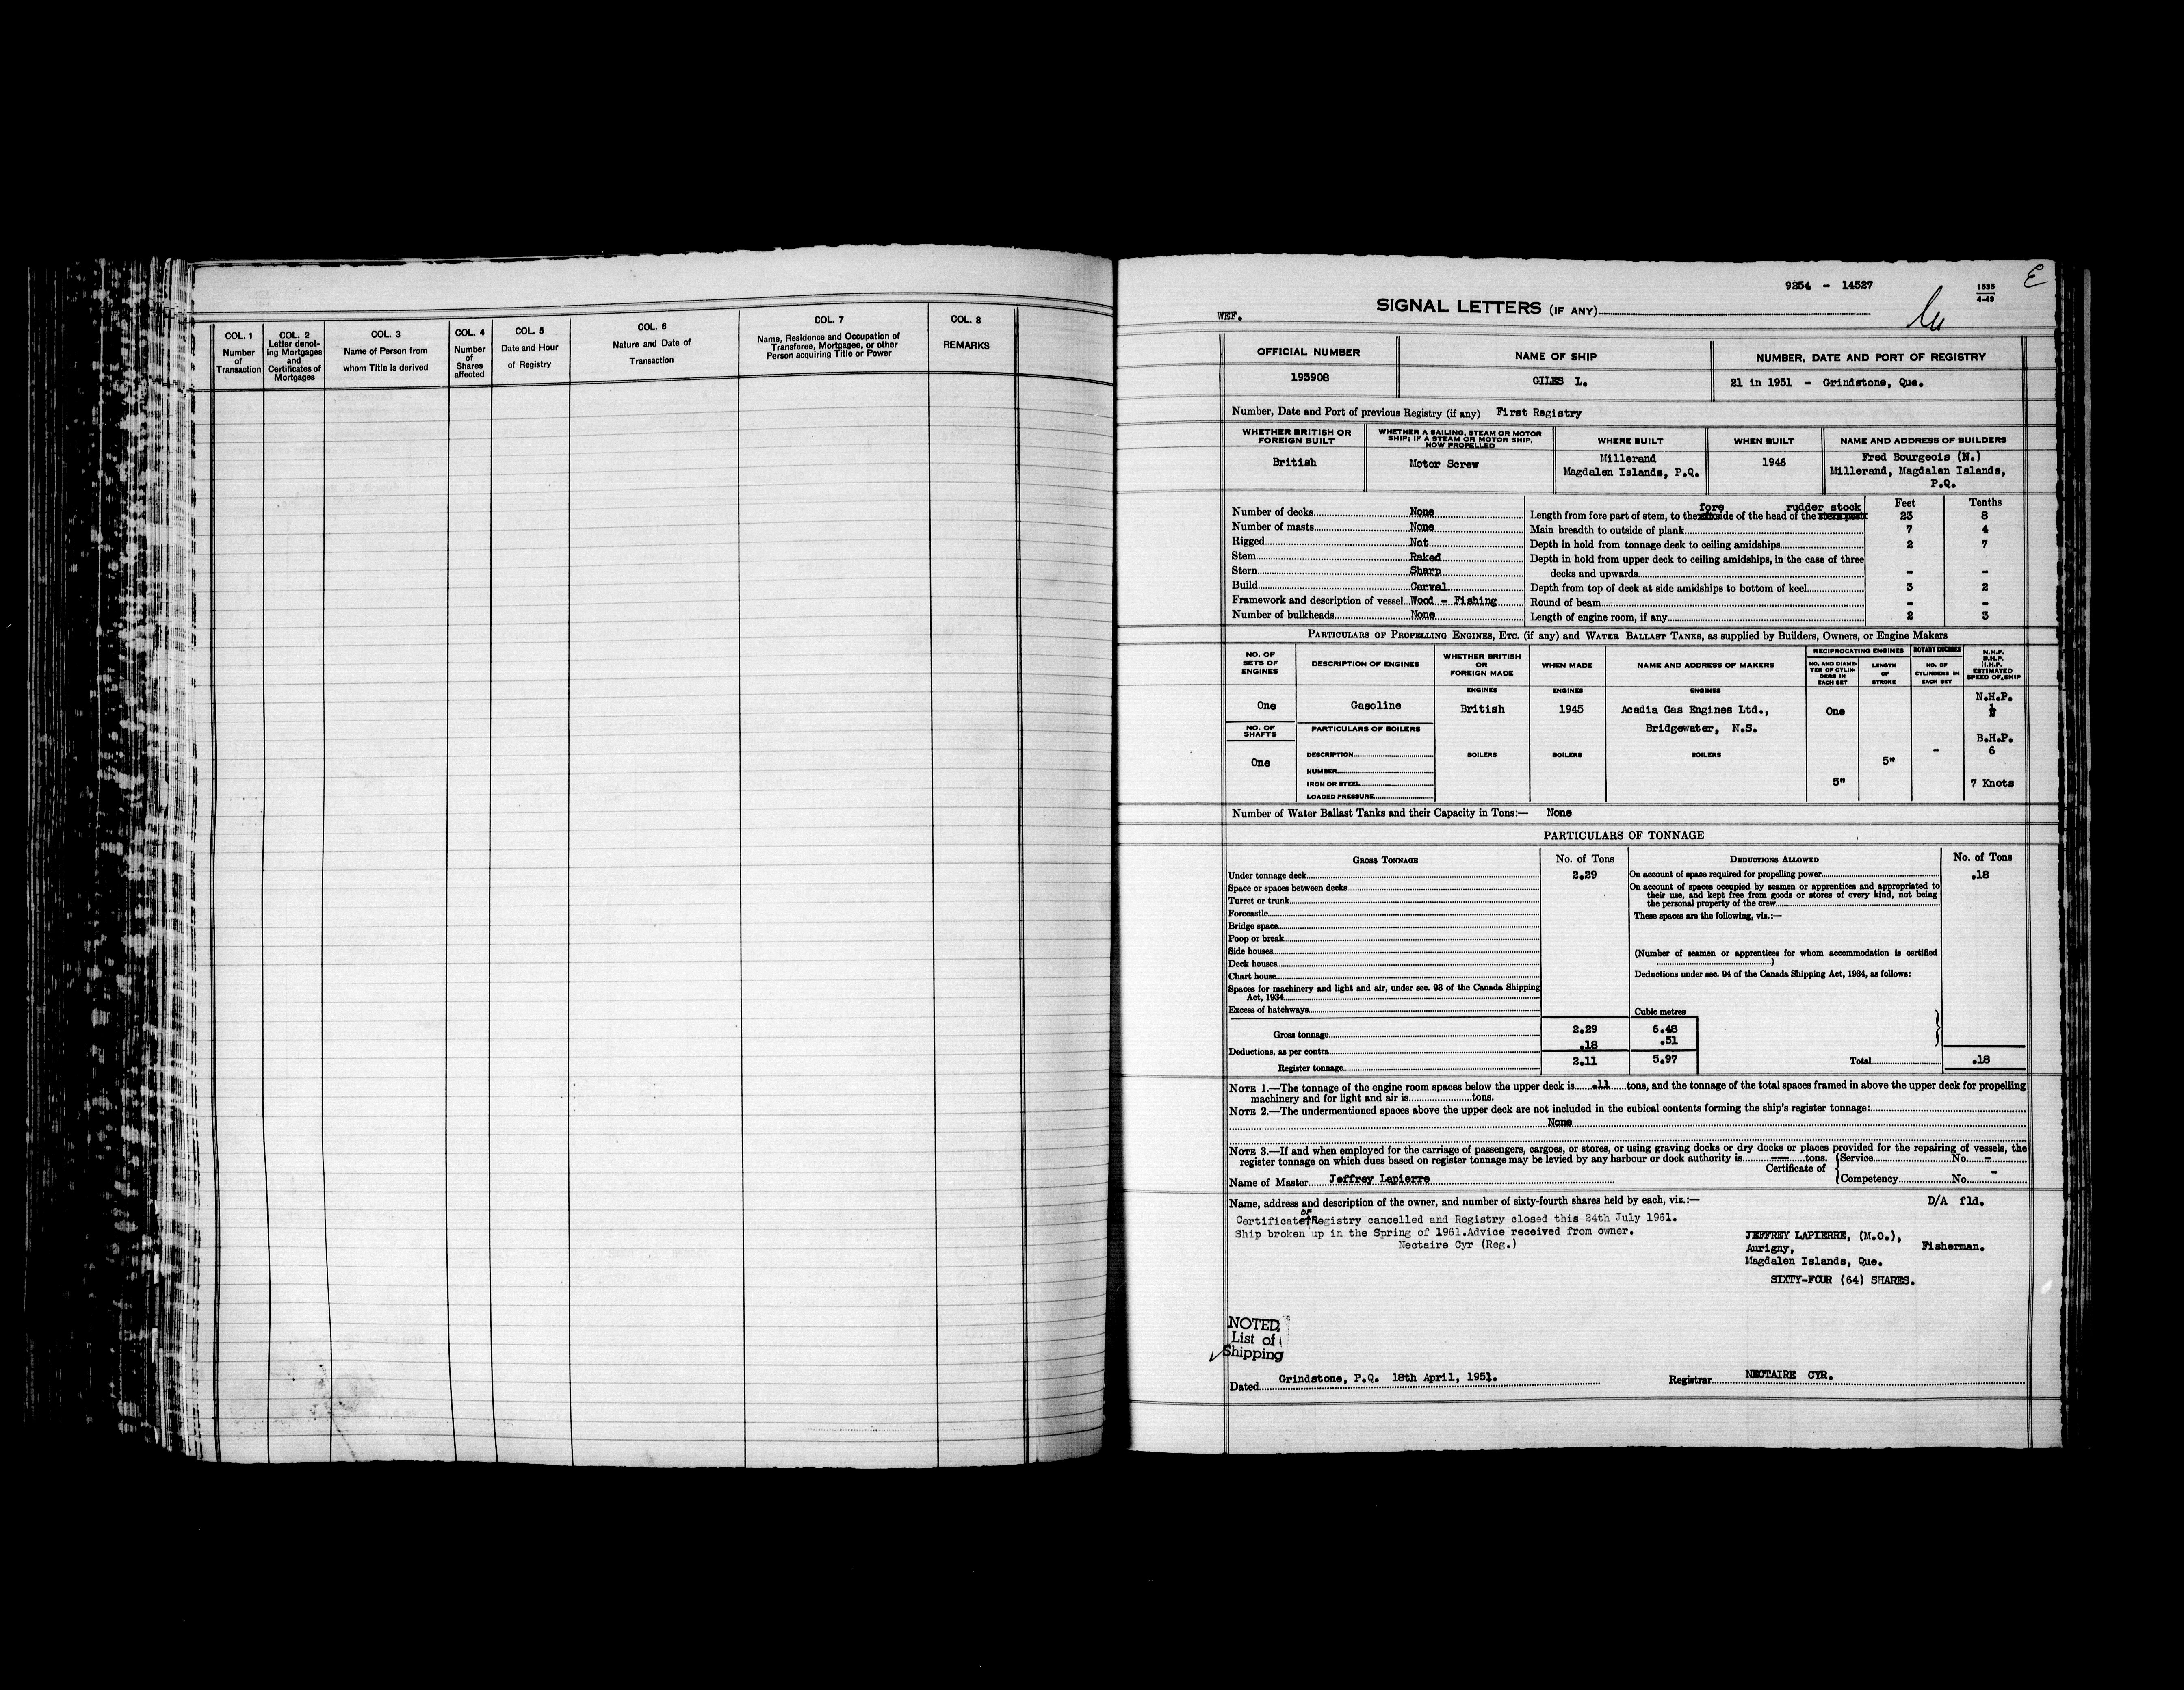 COL. 1
Number
of
Transaction
COL. 2
Letter denot-
ing Mortgages
and
Certificates of
Mortgages
COL. 3
Name of Person from
whom Title is derived
COL. 4
Number
of
Shares
affected
COL. 5
Date and Hour
of Registry
COL. 6
Nature and Date of
Transaction
COL. 7
Name, Residence and Occupation of
Transferee, Mortgagee, or other
Person acquiring Title or Power
COL. 8
REMARKS
9254 - 14527
1535
4-49
E
WEF.
SIGNAL LETTERS (IF ANY)
OFFICIAL NUMBER
193908
NAME OF SHIP
GILES L.
NUMBER, DATE AND PORT OF REGISTRY
21 in 1951 - Grindstone, Que.
Number, Date and Port of previous Registry (if any) First Registry
WHETHER BRITISH OR
FOREIGN BUILT
British
WHETHER A SAILING, STEAM OR MOTOR
SHIP; IF A STEAM OR MOTOR SHIP,
HOW PROPELLED
Motor Screw
WHERE BUILT
Millerand
Magdalen Islands, P.Q.
WHEN BUILT
1946
NAME AND ADDRESS OF BUILDERS
Fred Bourgeois (N.)
Millerand, Magdalen Islands,
P.Q.
Number of decks None
Number of masts None
Rigged Not
Stem Raked
Stern Sharp
Build Carvel
Framework and description of vessel Wood - Fishing
Number of bulkheads None
Feet Tenths
fore rudder stock
Length from fore part of stem, to the side of the head of the 23 8
Main breadth to outside of plank 7 4
Depth in hold from tonnage deck to ceiling amidships 2 7
Depth in hold from upper deck to ceiling amidships, in the case of three
decks and upwards - -
Depth from top of deck at side amidships to bottom of keel 3 2
Round of beam - -
Length of engine room, if any 2 3
PARTICULARS OF PROPELLING ENGINES, ETC. (if any) and WATER BALLAST TANKS, as supplied by Builders, Owners, or Engine Makers
NO. OF
SETS OF
ENGINES
One
NO. OF
SHAFTS
One
DESCRIPTION OF ENGINES
Gasoline
PARTICULARS OF BOILERS
DESCRIPTION
NUMBER
IRON OR STEEL
LOADED PRESSURE
WHETHER BRITISH
OR
FOREIGN MADE
ENGINES
British
BOILERS
WHEN MADE
ENGINES
1945
BOILERS
NAME AND ADDRESS OF MAKERS
ENGINES
Acadia Gas Engines Ltd.,
Bridgewater, N.S.
BOILERS
RECIPROCATING ENGINES
NO. AND DIAME-
TER OF CYLIN-
DERS IN
EACH SET
One
5"
LENGTH
OF
STROKE
5"
ROTARY ENGINES
NO. OF
CYLINDERS IN
EACH SET
-
N.H.P.
B.H.P.
I.H.P.
ESTIMATED
SPEED OF SHIP
N.H.P.
B.H.P.
6
7 Knots
Number of Water Ballast Tanks and their Capacity in Tons:— None
PARTICULARS OF TONNAGE
GROSS TONNAGE No. of Tons
Under tonnage deck 2.29
Space or spaces between decks
Turret or trunk
Forecastle
Bridge space
Poop or break
Side houses
Deck houses
Chart house
Spaces for machinery and light and air, under sec. 93 of the Canada Shipping
Act, 1934
Excess of hatchways
Cubic metres
Gross tonnage 2.29 6.48
Deductions, as per contra .18 .51
Register tonnage 2.11 5.97
DEDUCTIONS ALLOWED No. of Tons
On account of space required for propelling power .18
On account of spaces occupied by seamen or apprentices and appropriated to
their use, and kept free from goods or stores of every kind, not being
the personal property of the crew
These spaces are the following, viz.:—
(Number of seamen or apprentices for whom accommodation is certified
)
Deductions under sec. 94 of the Canada Shipping Act, 1934, as follows:
Total .18
NOTE 1.—The tonnage of the engine room spaces below the upper deck is .11 tons, and the tonnage of the total spaces framed in above the upper deck for propelling
machinery and for light and air is tons.
NOTE 2.—The undermentioned spaces above the upper deck are not included in the cubical contents forming the ship's register tonnage:
None
NOTE 3.—If and when employed for the carriage of passengers, cargoes, or stores, or using graving docks or dry docks or places provided for the repairing of vessels, the
register tonnage on which dues based on register tonnage may be levied by any harbour or dock authority is ---- tons.
Certificate of { Service No. -
Competency No. -
Name of Master Jeffrey Lapierre
Name, address and description of the owner, and number of sixty-fourth shares held by each, viz.:—
D/A fld.
Certificate of Registry cancelled and Registry closed this 24th July 1961.
Ship broken up in the Spring of 1961.Advice received from owner.
Nectaire Cyr (Reg.)
JEFFREY LAPIERRE, (M.O.),
Aurigny, Fisherman.
Magdalen Islands, Que.
SIXTY-FOUR (64) SHARES.
NOTED
List of
Shipping
Dated Grindstone, P.Q. 18th April, 1951.
Registrar NECTAIRE CYR.